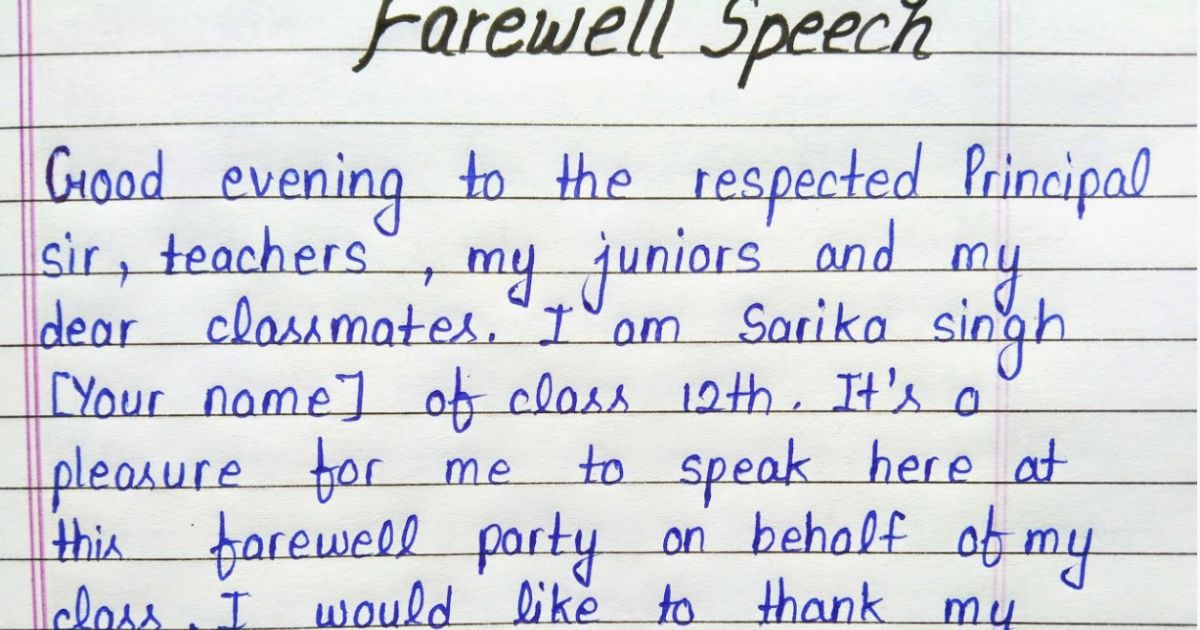 Farewell Speech
Good evening to the respected Principal
sir, teachers , my juniors and my
dear classmates. I am Sarika singh
[Your name] of class 12th. It's a
pleasure for me to speak here at
this farewell party on behalf of my
class. I would like to thank my